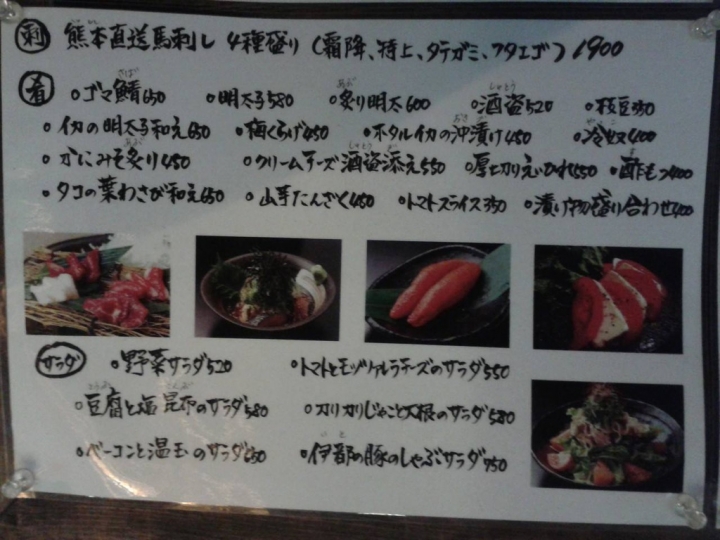 刺 熊本直送馬刺し 4種盛り(霜降、特上、タテガミ、フタエゴ) 1900
肴 ・ゴマ鯖650 ・明太子580 ・炙り明太600 ・酒盗520 ・枝豆350
・イカの明太子和え650 ・梅くらげ450 ・ホタルイカの沖漬け450 ・冷奴400
・かにみそ炙り450 ・クリームチーズ酒盗添え550 ・厚切りえいひれ550 ・酢もつ400
・タコの葉わさび和え650 ・山芋たんざく450 ・トマトスライス350 ・漬け物盛り合わせ400
サラダ ・野菜サラダ520 ・トマトとモッツァレラチーズのサラダ550
・豆腐と塩昆布のサラダ580 ・カリカリじゃこと大根のサラダ580
・ベーコンと温玉のサラダ650 ・伊都の豚のしゃぶサラダ750